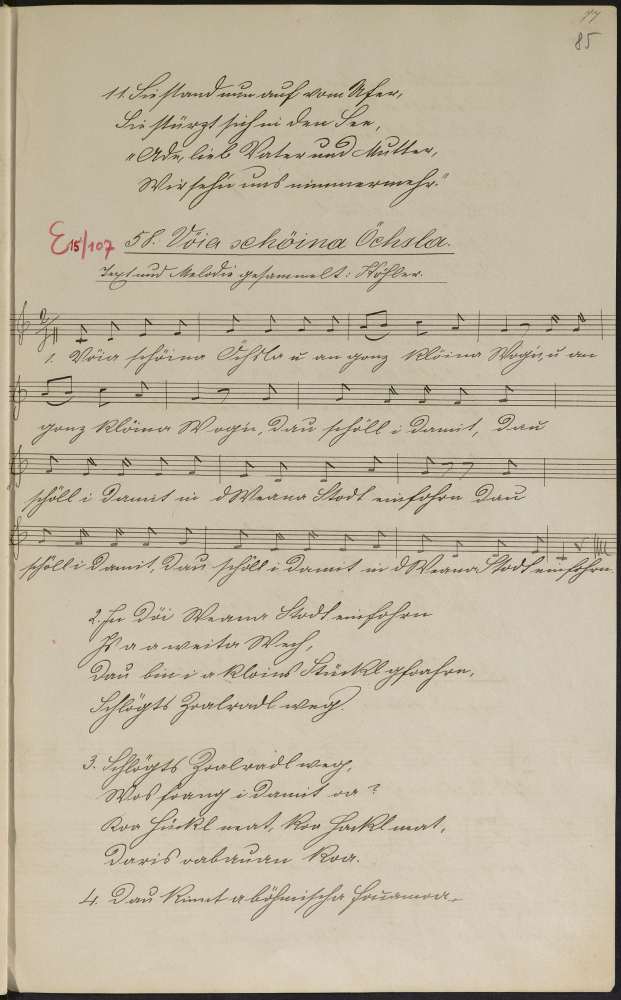 77
85
11. Sie stand nun auf vom Ufer,
Sie stürzt sich in den See,
"Ade, lieb Vater und Mutter,
Wir sehn uns nimmermehr."
E15/107 58. Vöia schöina Öchsla.
Text und Melodie gesammelt: Köhler.
1. Vöia schöina Öchsla u an gonz klöina Wog'n, u an
gonz klöina Wog'n, dau schöll i damit, dau
schöll i damit in d'Weana Stodt einfohrn dau
schöll i damit, dau schöll i damit in d'Weana Stodt einfohrn.
2. In döi Weana Stodt einfohrn
Is a a weita Wech,
Dau bin i a kloins Stückl gfoahrn,
Schlögts Zoalradl weg.
3. Schlögts Zoalradl weg,
Wos foang i damit oa?
Koa Hackl neat,
Daris oabauan koa.
4. Dau kinnt a böhmischa